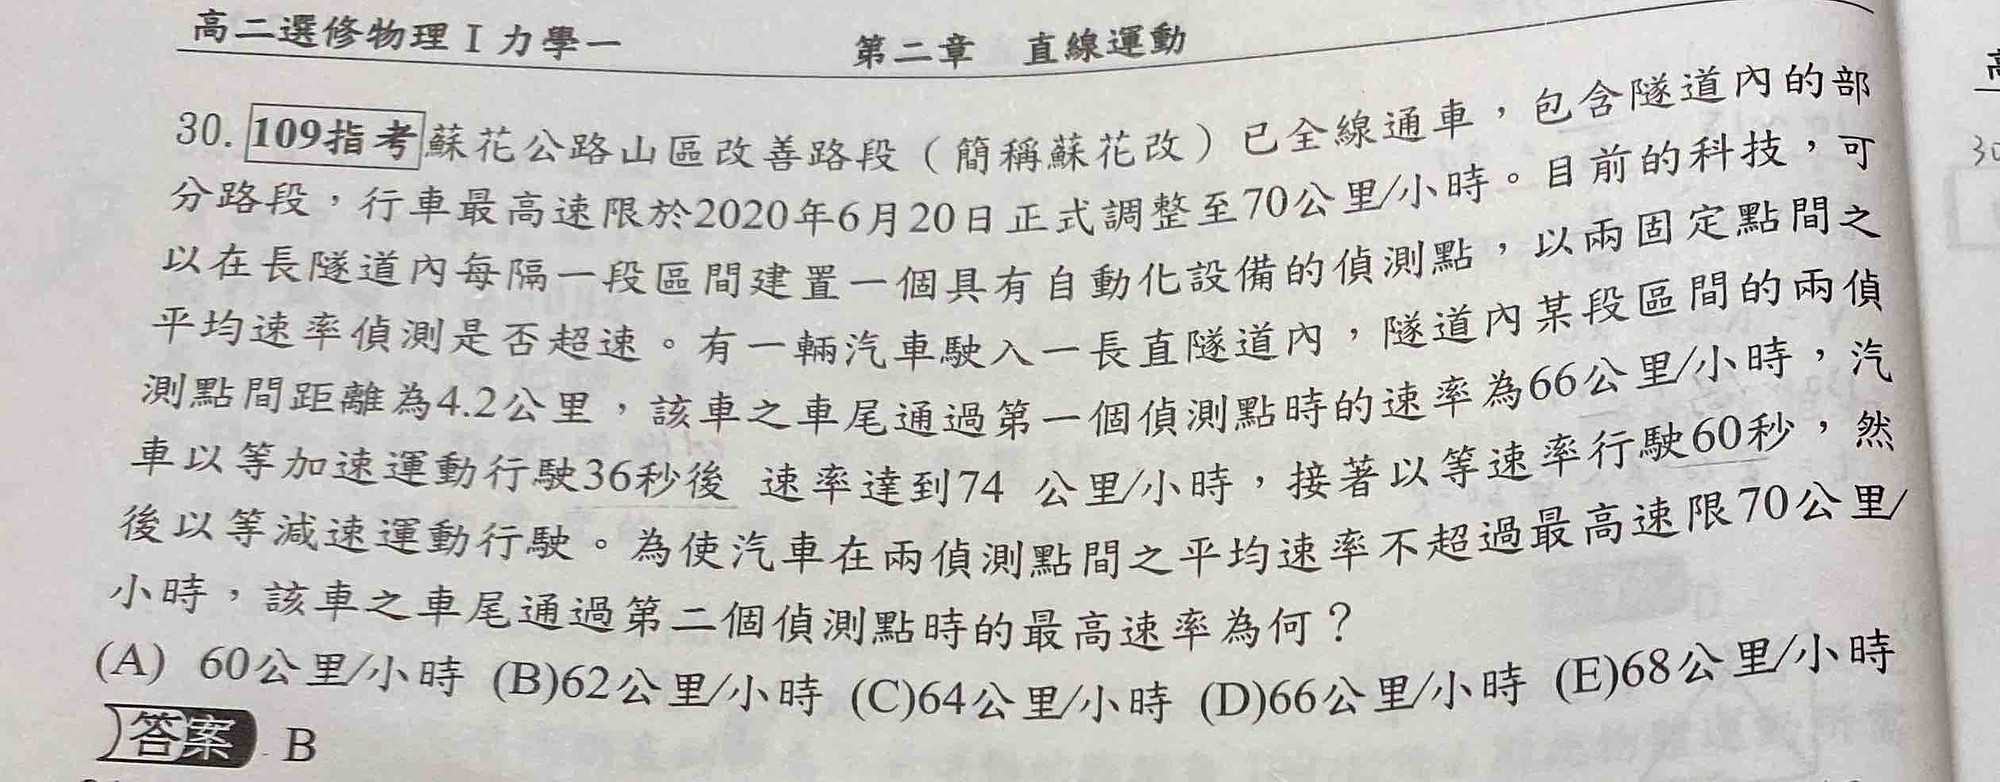 高二選修物理 I 力學一 第二章 直線運動
30. 109指考 蘇花公路山區改善路段（簡稱蘇花改）已全線通車，包含隧道內的部
分路段，行車最高速限於2020年6月20日正式調整至70公里/小時。目前的科技，可
以在長隧道內每隔一段區間建置一個具有自動化設備的偵測點，以兩固定點間之
平均速率偵測是否超速。有一輛汽車駛入一長直隧道內，隧道內某段區間的兩偵
測點間距離為4.2公里，該車之車尾通過第一個偵測點時的速率為66公里/小時，汽
車以等加速運動行駛36秒後 速率達到74 公里/小時，接著以等速率行駛60秒，然
後以等減速運動行駛。為使汽車在兩偵測點間之平均速率不超過最高速限70公里/
小時，該車之車尾通過第二個偵測點時的最高速率為何？
(A) 60公里/小時 (B)62公里/小時 (C)64公里/小時 (D)66公里/小時 (E)68公里/小時
答案 B
30